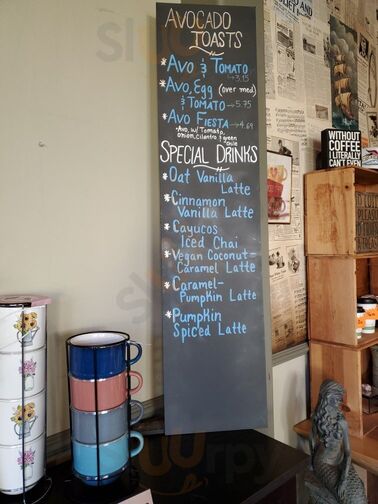 AVOCADO
TOASTS
* AVO & TOMATO
→3.15
* AVO, EGG (over med)
& TOMATO →5.75
* AVO FIESTA →4.69
-AVO, w/ TOMATO,
ONION, CILANTRO, & green
chile
SPECIAL DRINKS
* OAT VANILLA
LATTE
* CINNAMON
VANILLA LATTE
* CAYUCOS
ICED CHAI
* VEGAN COCONUT-
CARAMEL LATTE
* CARAMEL-
PUMPKIN LATTE
* PUMPKIN
SPICED LATTE
WITHOUT
COFFEE
I LITERALLY
CAN'T EVEN